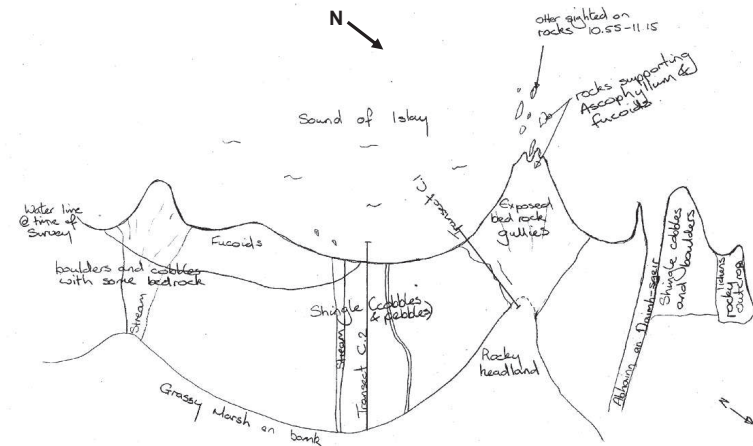 N
otter sighted on
rocks 10.55-11.15
rocks supporting
Ascophyllum &
fucoids.
Sound of Islay
Water line
@ time of
Survey
Fucoids
boulders and cobbles
with some bedrock
Stream
Shingle (cobbles
& pebbles)
Stream
Transect C.2
Transect C.1
Exposed
bed rock
gullies
Rocky
headland
Grassy Marsh on bank
Abhainn an Daimh-sgeir
Shingle cobbles
and boulders
lichens
rocky
outcrop
N